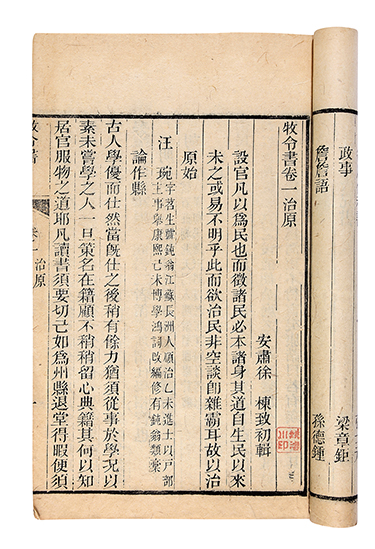 政事
梁章鉅
詹詹語
孫德鍾
牧令書卷一治原
安肅徐 棟致初輯
設官凡以爲民也而徵諸民必本諸身其道自生民以來
未之或易不明乎此而欲治民非空談卽雜霸耳故以治
原始
汪 琬
字苕生號鈍翁江蘇長洲人順治乙未進士以戶部
主事舉康熙己未博學鴻詞改編修有鈍翁類藁
論作縣
古人學優而仕然當旣仕之後稍有餘力猶須從事於學況以
素未嘗學之人一旦策名在籍顧不稍稍留心典籍其何以知
居官服物之道耶凡讀書須要切己如爲州縣退堂得暇便須
牧令書 卷一 治原 一